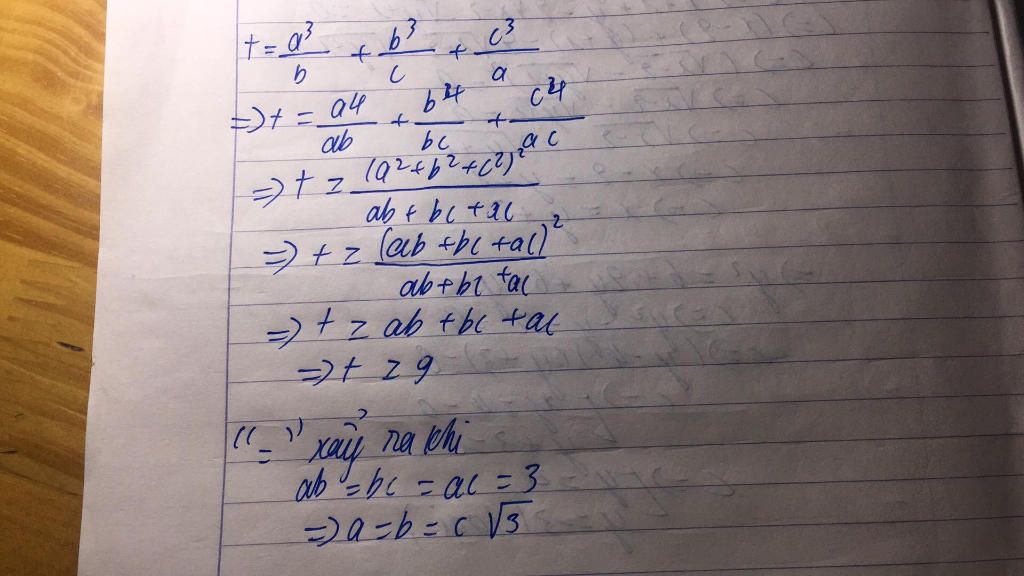 t = a³/b + b³/c + c³/a
=> t = a4/ab + b⁴/bc + c⁴/ac
=> t ≥ (a² + b² + c²)²/ab + bc + ac
=> t ≥ (ab + bc + ac)²/ab + bc + ac
=> t ≥ ab + bc + ac
=> t ≥ 9
"=" xảy ra khi
ab = bc = ac = 3
=> a = b = c √3